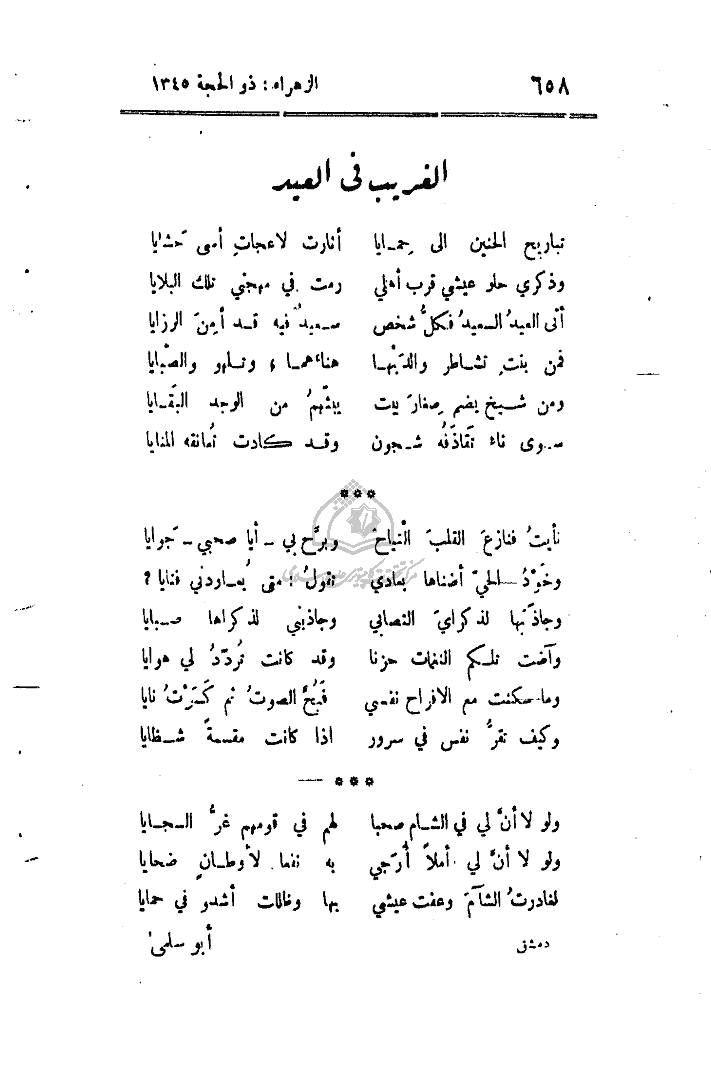 ٦٥٨ الزهراء: ذو الحجة ١٣٤٥
الغريب في العيد
تباريح الحنين الى حِمـايا أثارت لاعجاتِ أسى حَشايا
وذكري حلو عيشي قرب أهلي رمت في مهجتي تلك البلايا
أتى العيدُ السعيدُ فكلُّ شخص سعيدٌ فيه قد أمِنَ الرزايا
فمن بنتٍ تشاطر والدَيْها هناءهما، وتلهو والصَّبايا
ومن شيخ يضم صِغارَ بيت يبثُّهمُ من الوجد البَقايا
سوى ناء تَقاذَفُه شجون وقد كادت تُعانقه المنايا
***
نأيتُ فنازعَ القلبَ الْتياحٌ وبرَّح بي ـ أيا صحبي ـ جَوايا
وخَوْدُ الحيّ أضناها بعادي تقولُ: متى يُعاودني فتايا؟
وجاذَبَها لذكرايَ التصابي وجاذبني لذكراها صبايا
وآضت تلكم النغمات حزنا وقد كانت تُردّدُ لي هوايا
وما سكنت مع الافراح نفسي فبُحَّ الصوتُ ثم كَسَرْتُ نايا
وكيف تقرُّ نفس في سرور اذا كانت مقسمةً شظايا
***
ولو لا أنَّ لي في الشام صحبا لهم في قومهم غرُّ السجايا
ولو لا أنَّ لي أملاً أُرَجي به نفعا لأوطانٍ ضحايا
لغادرتُ الشآمَ وعفت عيشي بها وظللت أشدو في حمايا
دمشق أبو سلمى